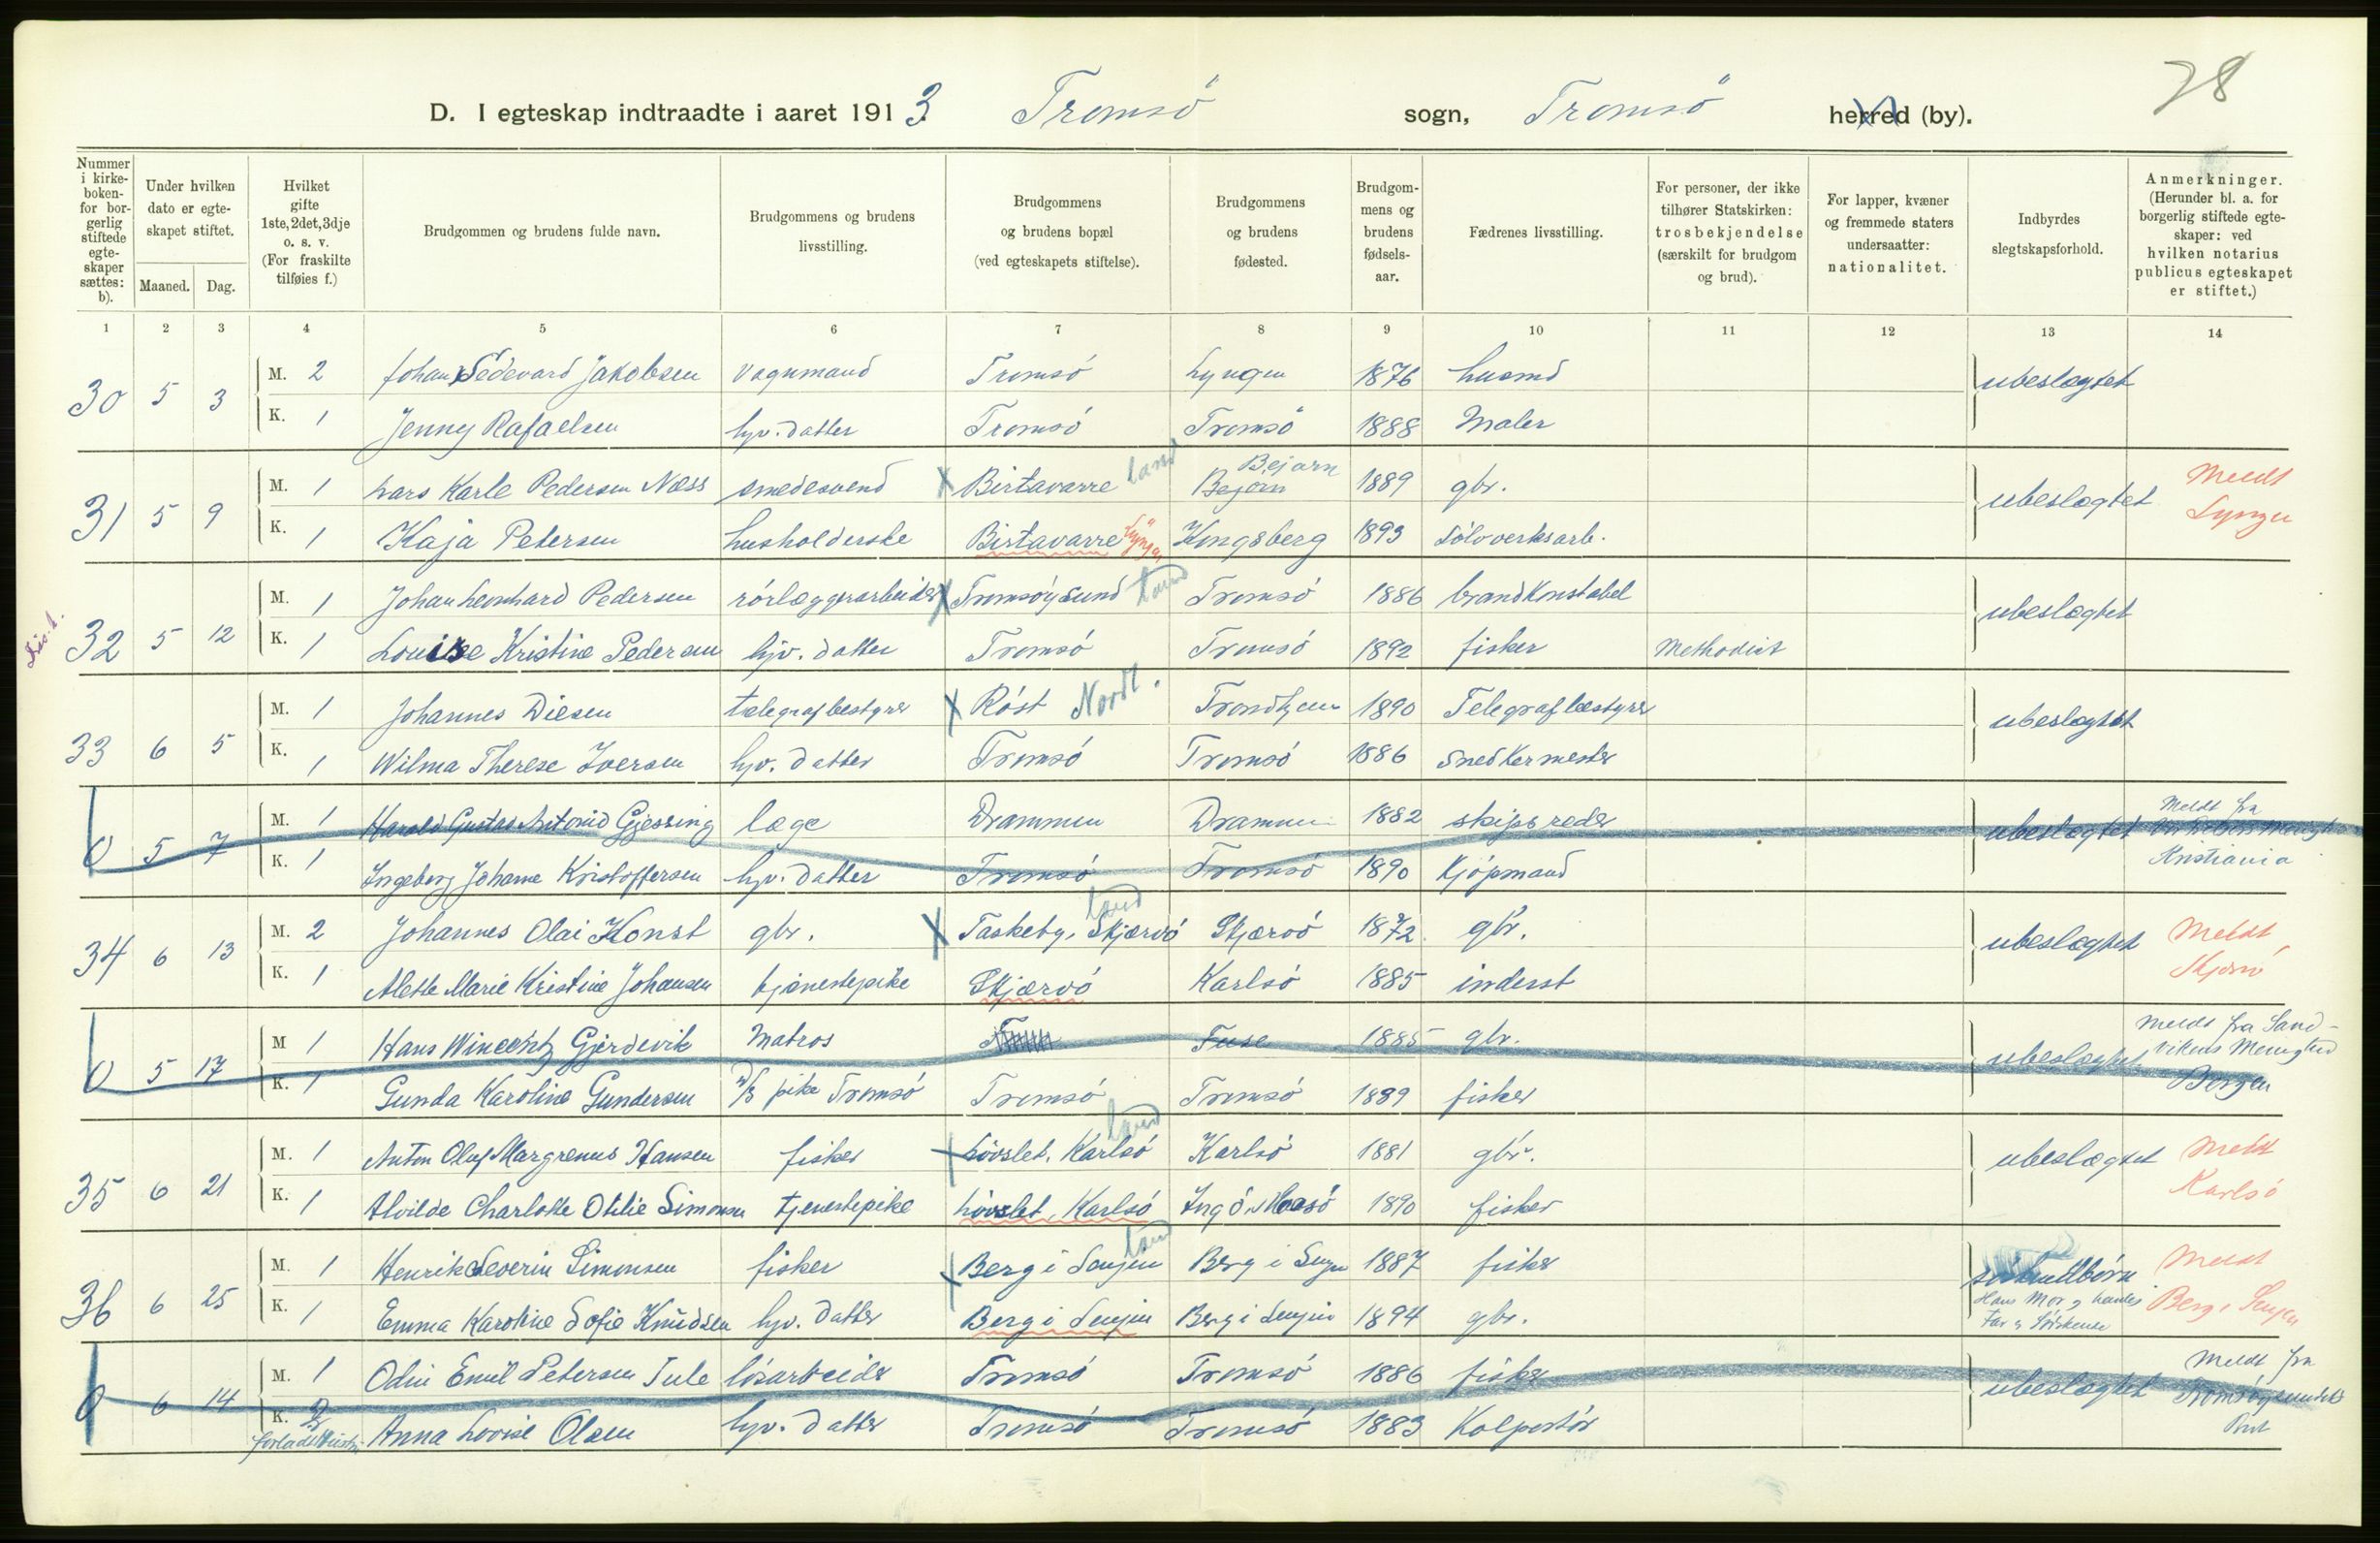 D. I egteskap indtraadte i aaret 1913 Tromsö sogn, Tromsö herred (by). 78
Nummer i kirke-boken- for bor-gerlig stiftede egte-skaper sættes: b).
Under hvilken dato er egte-skapet stiftet.
Maaned. Dag.
Hvilket gifte 1ste, 2det, 3dje o. s. v. (For fraskilte tilføies f.)
Brudgommen og brudens fulde navn.
Brudgommens og brudens livsstilling.
Brudgommens og brudens bopæl (ved egteskapets stiftelse).
Brudgommens og brudens fødested.
Brudgom-mens og brudens fødsels-aar.
Fædrenes livsstilling.
For personer, der ikke tilhører Statskirken: trosbekjendelse (særskilt for brudgom og brud).
For lapper, kvæner og fremmede staters undersaatter: nationalitet.
Indbyrdes slegtskapsforhold.
Anmerkninger. (Herunder bl. a. for borgerlig stiftede egte-skaper: ved hvilken notarius publicus egteskapet er stiftet.)
1 2 3 4 5 6 7 8 9 10 11 12 13 14
30 5 3 M. 2 Johan Edevard Jakobsen vognmand Tromsö Lyngen 1876 husmd ubeslægtet
K. 1 Jenny Rafaelsen hjv. datter Tromsö Tromsö 1888 Maler
31 5 9 M. 1 Lars Karle Pedersen Næss smedesvend X Birtavarre land Bejarn Bejörn 1889 gbr. ubeslægtet Meldt Lyngen
K. 1 Kaja Petersen husholderske Birtavarre Lyngen Kongsberg 1893 Sölvverksarb.
32 5 12 M. 1 Johan Leonhard Pedersen rörlæggerarbeider X Tromsöysund Land Tromsö 1886 brandkonstabel ubeslægtet
K. 1 Louise Kristine Pedersen hjv. datter Tromsö Tromsö 1892 fisker Methodist
33 6 5 M. 1 Johannes Diesen telegrafbestyrer X Röst Nordl. Trondhjem 1890 Telegrafbestyrer ubeslægtet
K. 1 Wilma Therese Iversen hjv. datter Tromsö Tromsö 1886 Snedkermester
0 5 7 M. 1 Harald Gustav Antonid Gjessing læge Drammen Drammen 1882 skipsreder ubeslægtet Meldt fra Menigh Kristiania
K. 1 Ingeborg Johanne Kristoffersen hjv. datter Tromsö Tromsö 1890 Kjöpmand
34 6 13 M. 2 Johannes Olai Konst gbr. X Taskeby, Skjærvö land Skjærvö 1872 gbr. ubeslægtet Meldt Skjærvö
K. 1 Alette Marie Kristine Johansen tjenestepike Skjærvö Karlsö 1885 inderst
0 5 17 M 1 Hans Wincentz Gjerdevik Matros Fuse 1885 gbr. ubeslægtet Meldt fra Sand-vikens Menighed Bergen
K. 1 Gunda Karoline Gundersen pike Tromsö Tromsö Tromsö 1889 fisker
35 6 21 M. 1 Anton Oluf Margrenus Hansen fisker X Lövslet, Karlsö land Karlsö 1881 gbr. ubeslægtet Meldt Karlsö
K. 1 Alvilde Charlotte Otilie Simonsen tjenestepike Lövslet, Karlsö Ingö, Maasö 1890 fisker
36 6 25 M. 1 Henrik Severin Simonsen fisker X Berg i Senjen land Berg i Senjen 1887 fisker Meldt Berg i Senjen
K. 1 Emma Karoline Sofie Knudsen hjv. datter Berg i Senjen Berg i Senjen 1894 gbr. Hans Mor og hendes Far er Söskende
0 6 14 M. 1 Odin Emil Petersen Tule lösarbeider Tromsö Tromsö 1886 fisker ubeslægtet Meldt fra Tromsöysundets
K. 2 Anna Lovise Olsen hjv. datter Tromsö Tromsö 1883 Kolportör